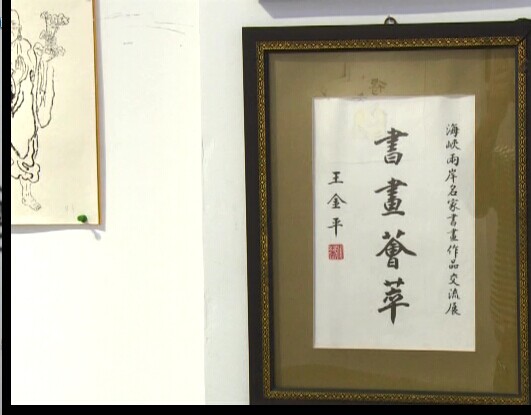 海峽兩岸名家書畫作品交流展
書畫薈萃
王金平